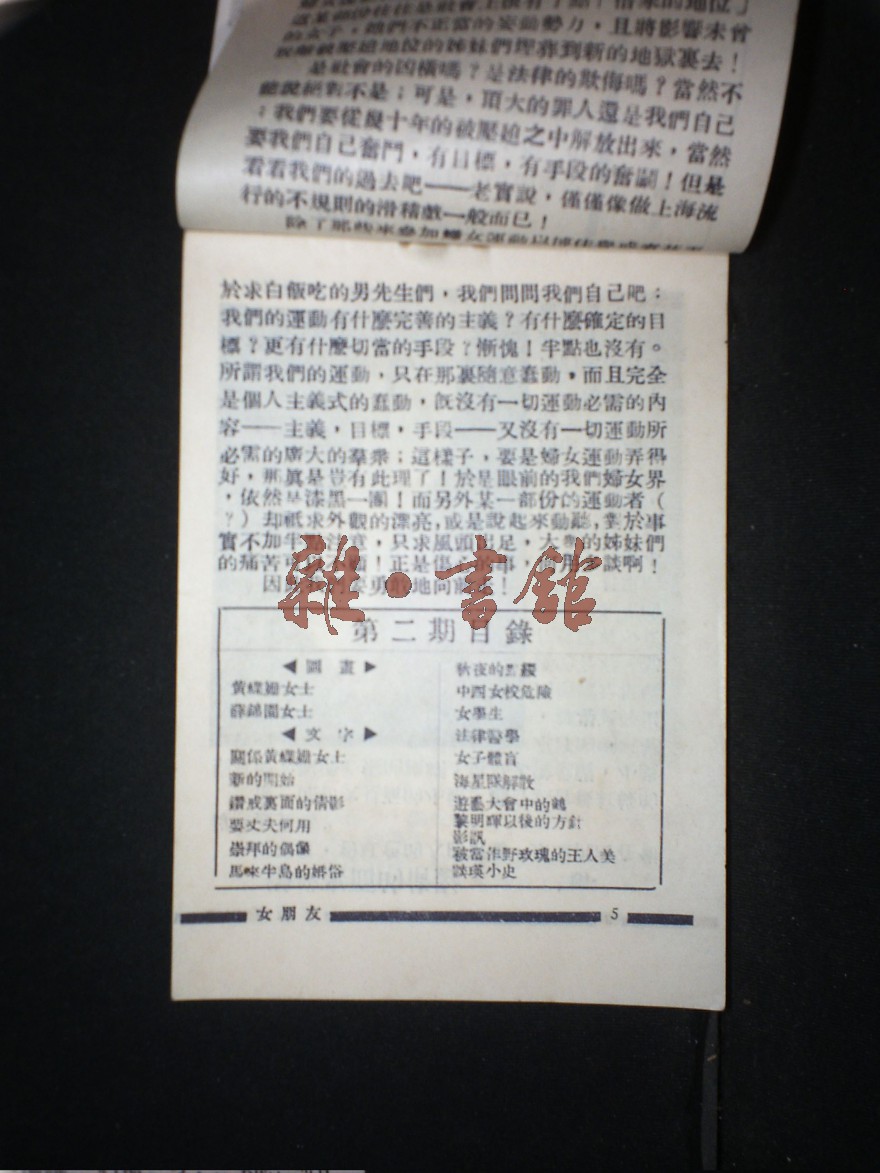 的女子，她們不正當的妄能勢力，且將影響未曾
是社會的因橫嗎？是法律的欺侮嗎？當然不
能說絕對不是；可是，頂大的罪人還是我們自己
；我們要從幾十年的被壓迫之中解放出來，當然
要我們自己奮鬥，有目標，有手段的奮鬭！但是
看看我們的過去吧——老實說，僅僅像做上海流
行的不規則的滑稽戲一般而已！
於求白飯吃的男先生們，我們問問我們自己吧：
我們的運動有什麼完善的主義？有什麼確定的目
標？更有什麼切當的手段？慚愧！半點也沒有。
所謂我們的運動，只在那裏隨意蠢動，而且完全
是個人主義式的蠢動，旣沒有一切運動必需的內
容——主義，目標，手段——又沒有一切運動所
必需的廣大的羣衆；這樣子，要是婦女運動弄得
好，那眞是豈有此理了！於是眼前的我們婦女界
，依然是漆黑一團！而另外某一部份的運動者（
？）却祗求外觀的漂亮，或是說起來動聽，對於事
實不加半點注意，只求風頭出足，大衆的姊妹們
的痛苦可以不顧！正是傷心的事，何用多談啊！
因此我們要勇敢地向前進！
雜·書館
第二期目錄
◀圖畫▶
黃蝶嬋女士
薛錦園女士
◀文字▶
關係黃蝶嬋女士
新的開始
鑽戒裏面的倩影
要丈夫何用
崇拜的偶像
馬來半島的婚俗
秋夜的點綴
中西女校危險
女學生
法律醫學
女子體育
海星隊解散
遊藝大會中的鷄
黎明暉以後的方針
影訊
被當作野玫瑰的王人美
談瑛小史
女朋友
5